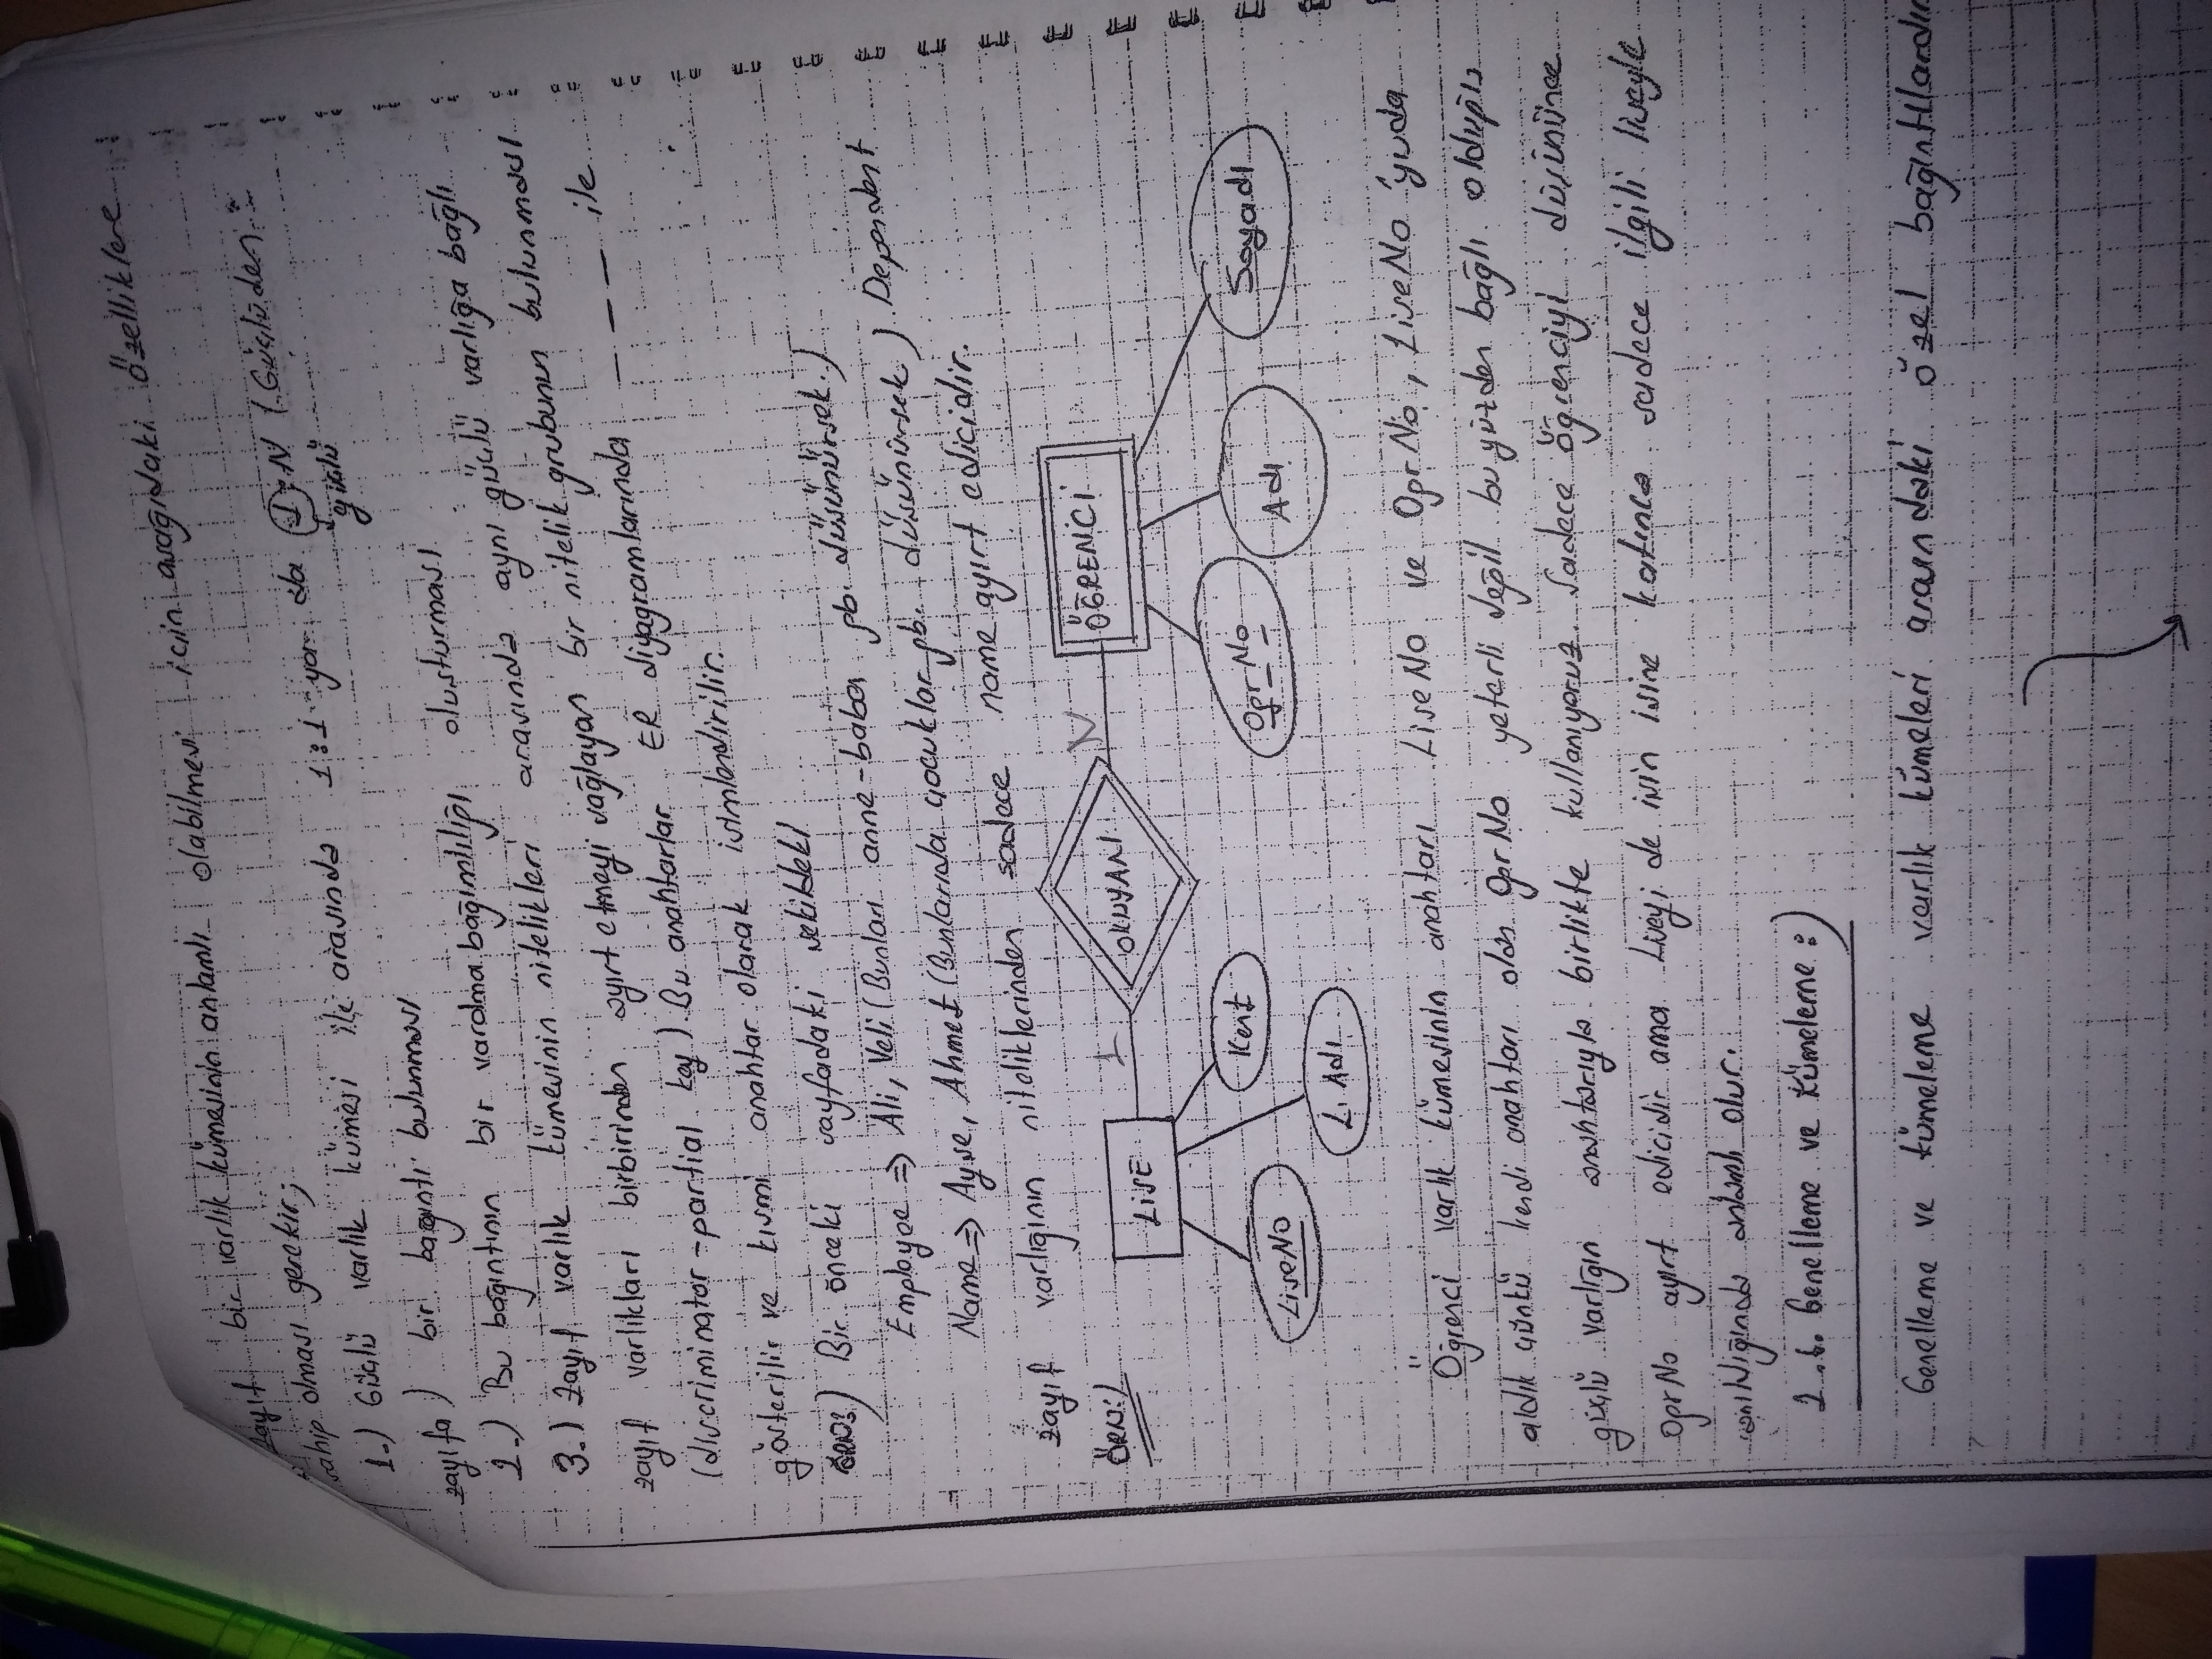 Zayıf bir varlık kümesinin anlamlı olabilmesi için aşağıdaki özelliklere
sahip olması gerekir;
1.) Güçlü varlık kümesi ile arasında 1:1 ya da 1:N (Güçlüden
zayıfa) bir bagıntı bulunması "güçlü
2.) Bu bağıntının bir varolma bağımlılığı oluşturması
3.) Zayıf varlık kümesinin nitelikleri arasında aynı güçlü varlığa bağlı
zayıf varlıkları birbirinden ayırt etmeyi sağlayan bir nitelik grubunun bulunması
(discriminator-partial key). Bu anahtarlar ER diyagramlarında _ _ _ ile
gösterilir ve kısmi anahtar olarak isimlendirilir.
Bir önceki sayfadaki şekildeki
Employee => Ali, Veli (Bunları anne-baba gb. düşünürsek.)
Name => Ayşe, Ahmet (Bunlarında çocuklar gb. düşünürsek) Dependent
zayıf varlığının niteliklerinden sadece name ayırt edicidir.
ÖRN:)
LİSE 1 OKUYAN N ÖĞRENCİ
LiseNo
L. Adı
Kent
Ogr No
Adı
Soyadı
Öğrenci varlık kümesinin anahtarı LiseNo ve OgrNo, LiseNo 'yuda
aldık çünkü kendi anahtarı olan OgrNo yeterli değil bu yüzden bağlı olduğu
güçlü varlığın anahtarıyla birlikte kullanıyoruz. Sadece öğrenciyi düşününce
OgrNo ayırt edicidir ama Liseyi de işin işine katınca sadece ilgili liseyle
anlamlı olur.
2.6. Genelleme ve Kümeleme :)
Genelleme ve kümeleme varlık kümeleri arasındaki özel bağıntılardır